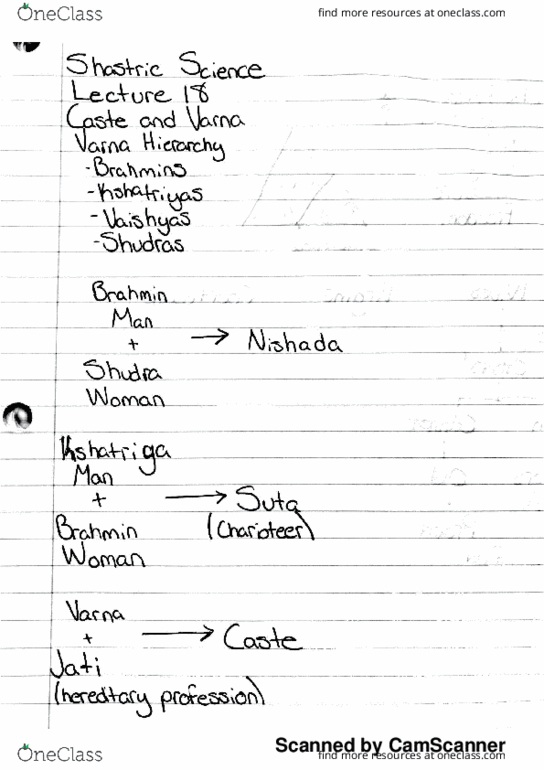 OneClass
find more resources at oneclass.com
Shastric Science
Lecture 18
Caste and Varna
Varna Hierarchy
-Brahmins
-Kshatriyas
-Vaishyas
-Shudras
Brahmin
Man
+
→ Nishada
Shudra
Woman
Kshatriga
Man
+
→ Suta
Brahmin (Charioteer)
Woman
Varna
+
→ Caste
Jati
(heredtary profession)
Scanned by CamScanner
OneClass
find more resources at oneclass.com